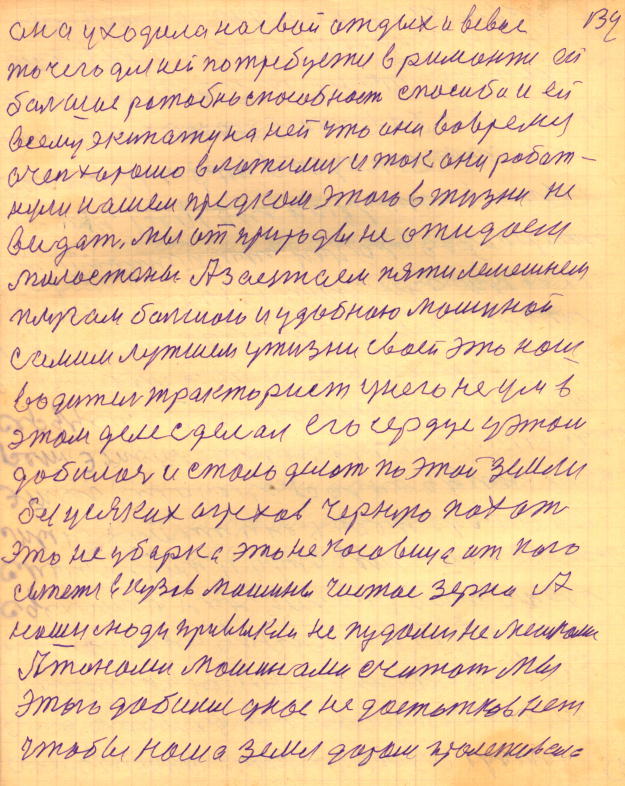 она уходила на свой отдых и все
то чего для ней потребуется в римонти ей
балшие работы способност способа и ей
всему экипажу на ней что они вовремя
очен хорошо вложили и так они работ-
нули нашем предком этого в жизни не
видат. Мы от природы не ожидаем
милостоны А заежаем пятилемешнем
плугам балшого и удобною машиной
самим лутшем у жизни своей это наш
водител тракторист у него не ум в
этом деле сделал Его сердце у этом
добилос и стало делат по этой земли
без усяких огрехов черную пахот
это не уборка это не косовица от кого
сыпетя в кузов машины чистое зерно А
наши люди привыкли не пудами не мешками
А тонами машинами считат Мы
этого добилис у нас не достатков нет
чтобы наша земля даром пролеживала